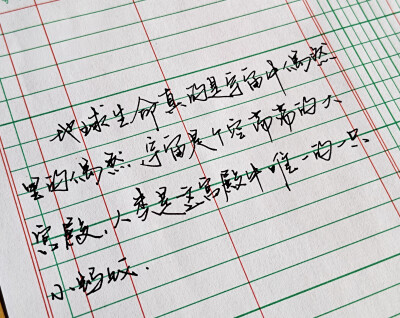 地球生命真的是宇宙中偶然
里的偶然.宇宙是个空荡荡的大
宫殿,人类是这宫殿中唯一的一只
小蚂蚁.